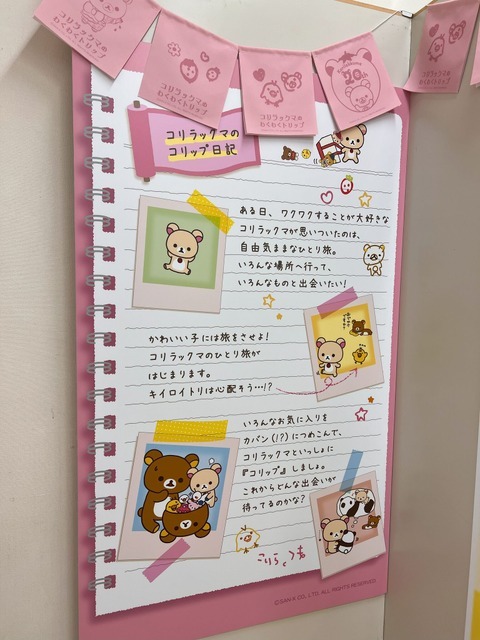 コリラックマの
わくわくトリップ
コリラックマの
わくわくトリップ
20th
コリラックマの
わくわくトリップ
コリラックマの
コリップ日記
ある日、ワクワクすることが大好きな
コリラックマが思いついたのは、
自由気ままなひとり旅。
いろんな場所へ行って、
いろんなものと出会いたい!
かわいい子には旅をさせよ!
コリラックマのひとり旅が
はじまります。
キイロイトリは心配そう…!?
いろんなお気に入りを
カバン(!?)につめこんで、
コリラックマといっしょに
『コリップ』しましょ。
これからどんな出会いが
待ってるのかな?
©SAN-X CO., LTD. ALL RIGHTS RESERVED.